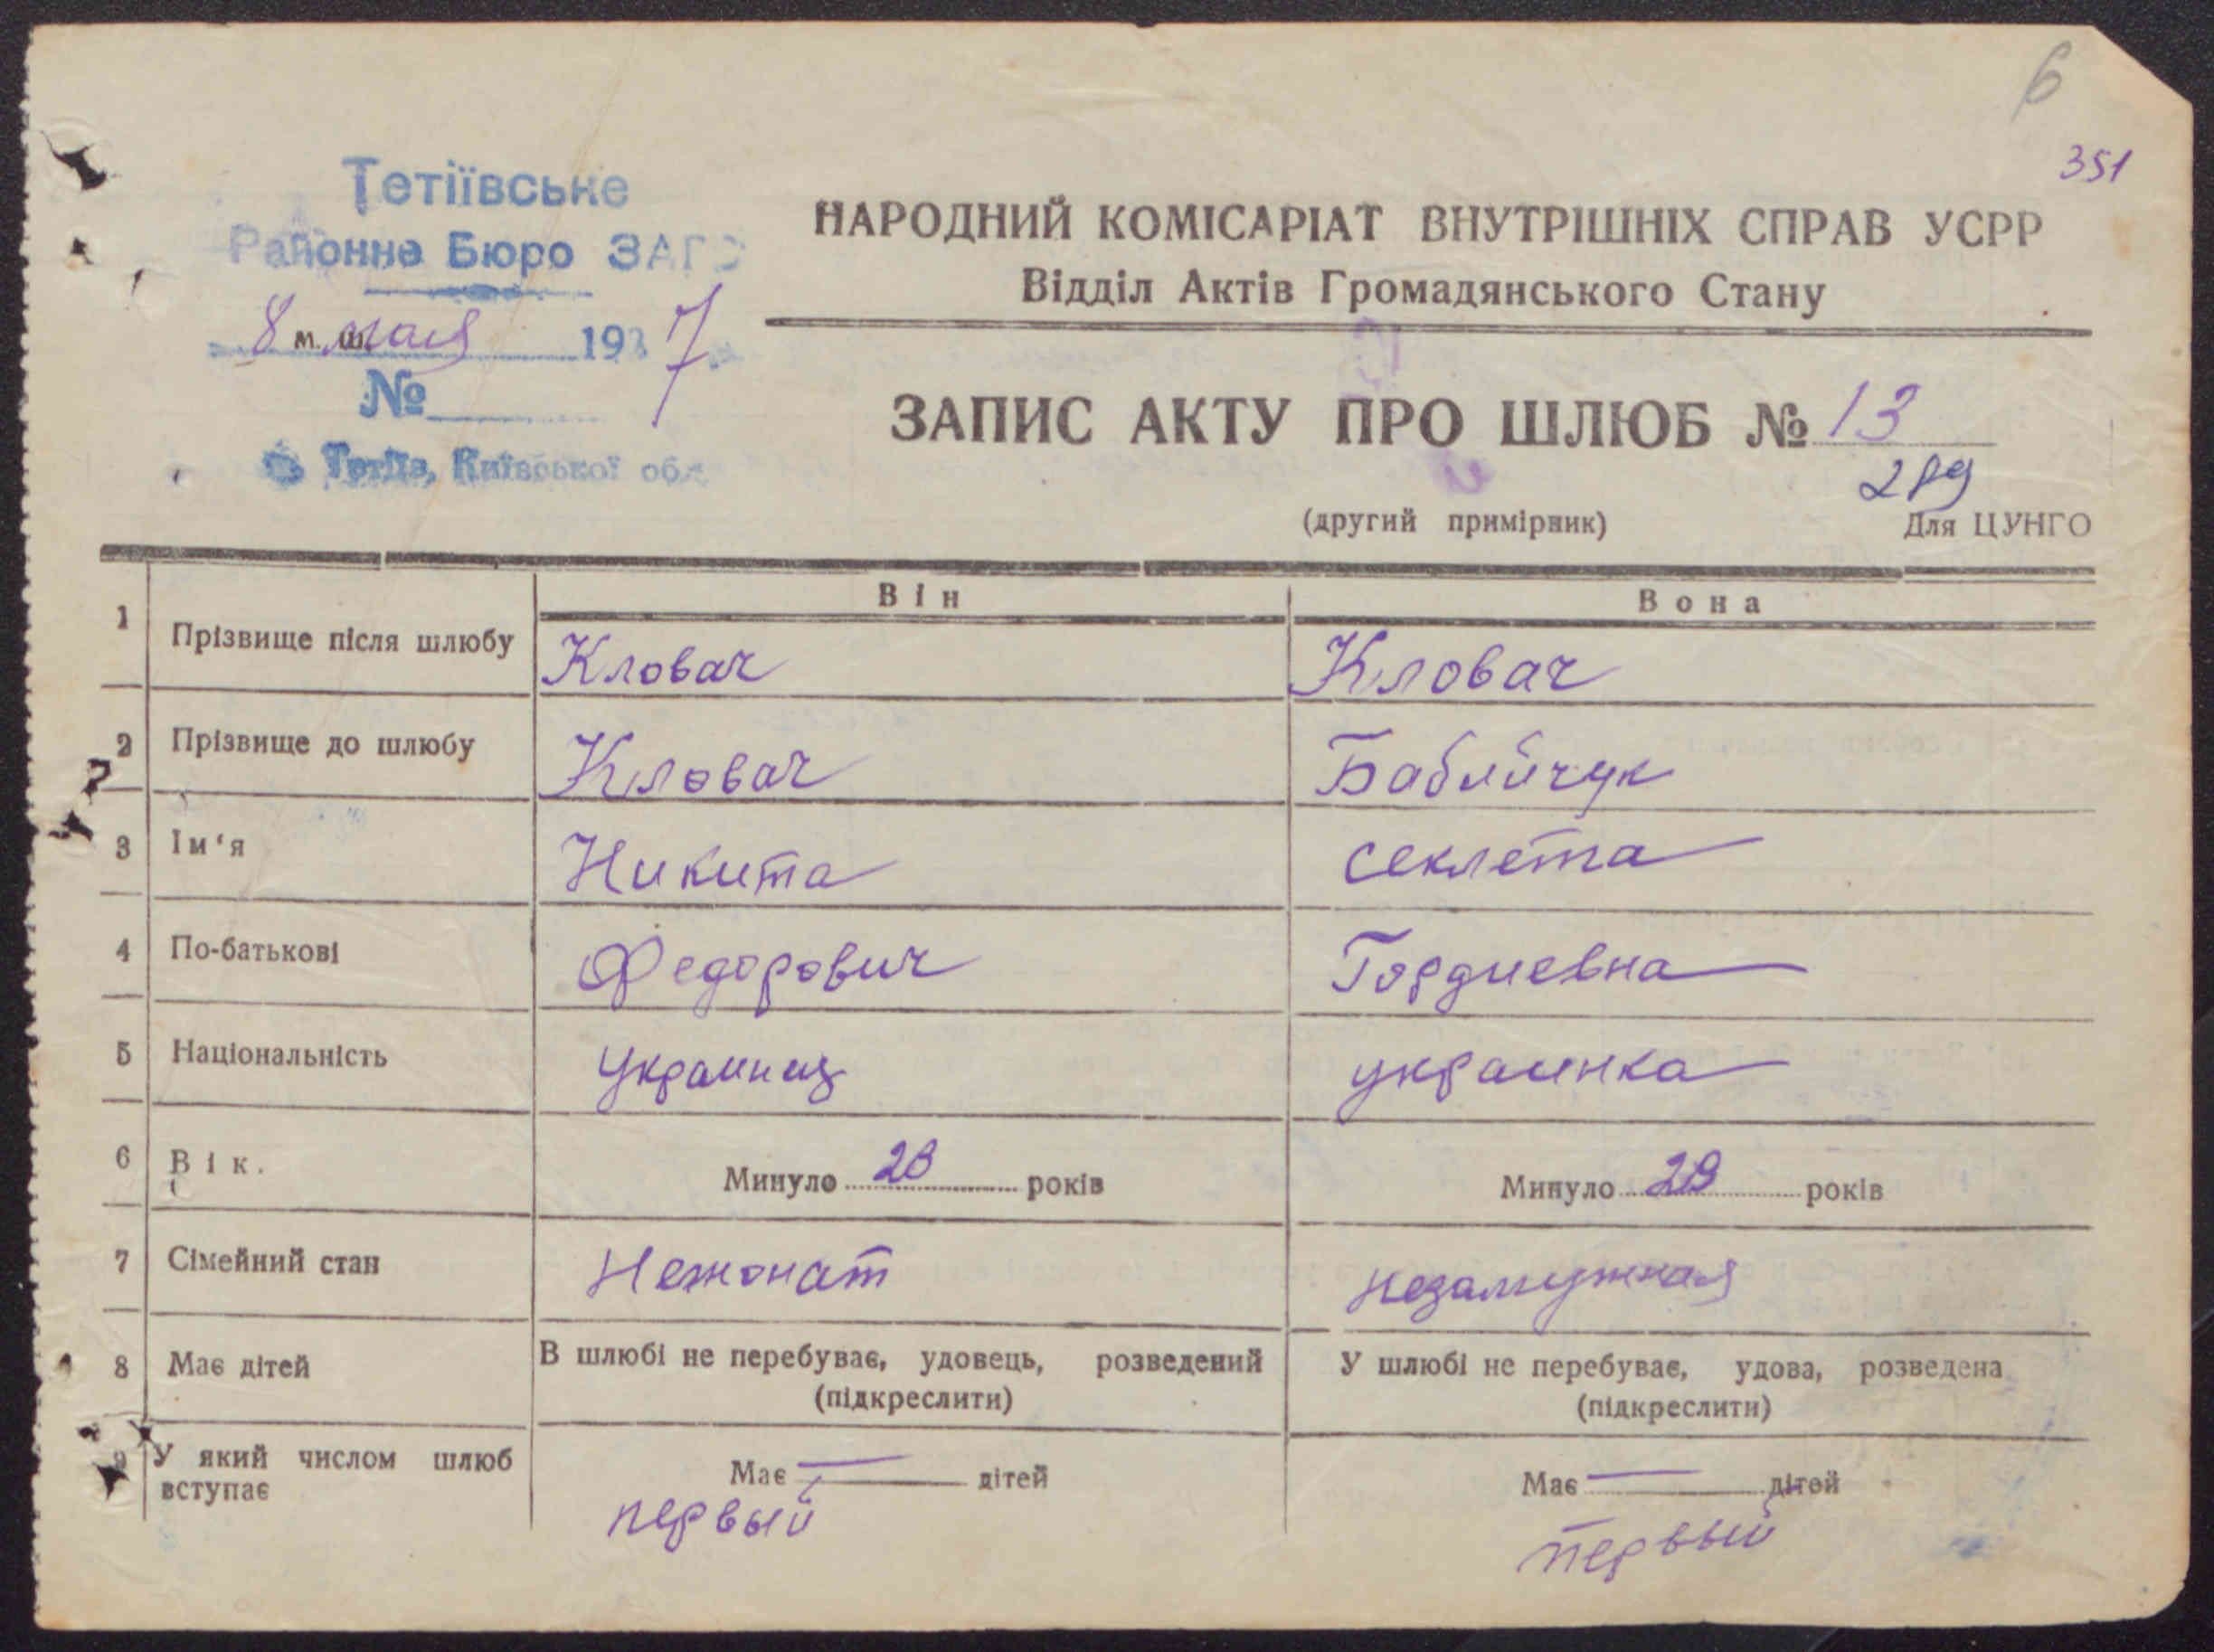 6
351
Тетіївське
Районне Бюро ЗАГС
8 м. мая 1937
№
Тетіїв, Київської обл.
НАРОДНИЙ КОМІСАРІАТ ВНУТРІШНІХ СПРАВ УСРР
Відділ Актів Громадянського Стану
ЗАПИС АКТУ ПРО ШЛЮБ № 13
289
(другий примірник) Для ЦУНГО
Він Вона
1 Прізвище після шлюбу Кловач Кловач
2 Прізвище до шлюбу Кловач Бабийчук
3 Ім'я Никита секлета
4 По-батькові Федорович Гордиевна
5 Національність украинец украинка
6 Вік. Минуло 28 років Минуло 29 років
7 Сімейний стан Нежонат незамужная
8 Має дітей В шлюбі не перебуває, удовець, розведений У шлюбі не перебуває, удова, розведена
(підкреслити) (підкреслити)
9 У який числом шлюб Має — дітей Має — дітей
вступає первый первый